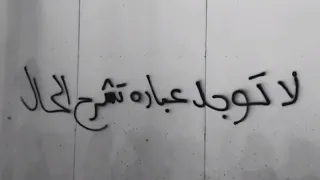 لا توجد عباره تشرح الحال